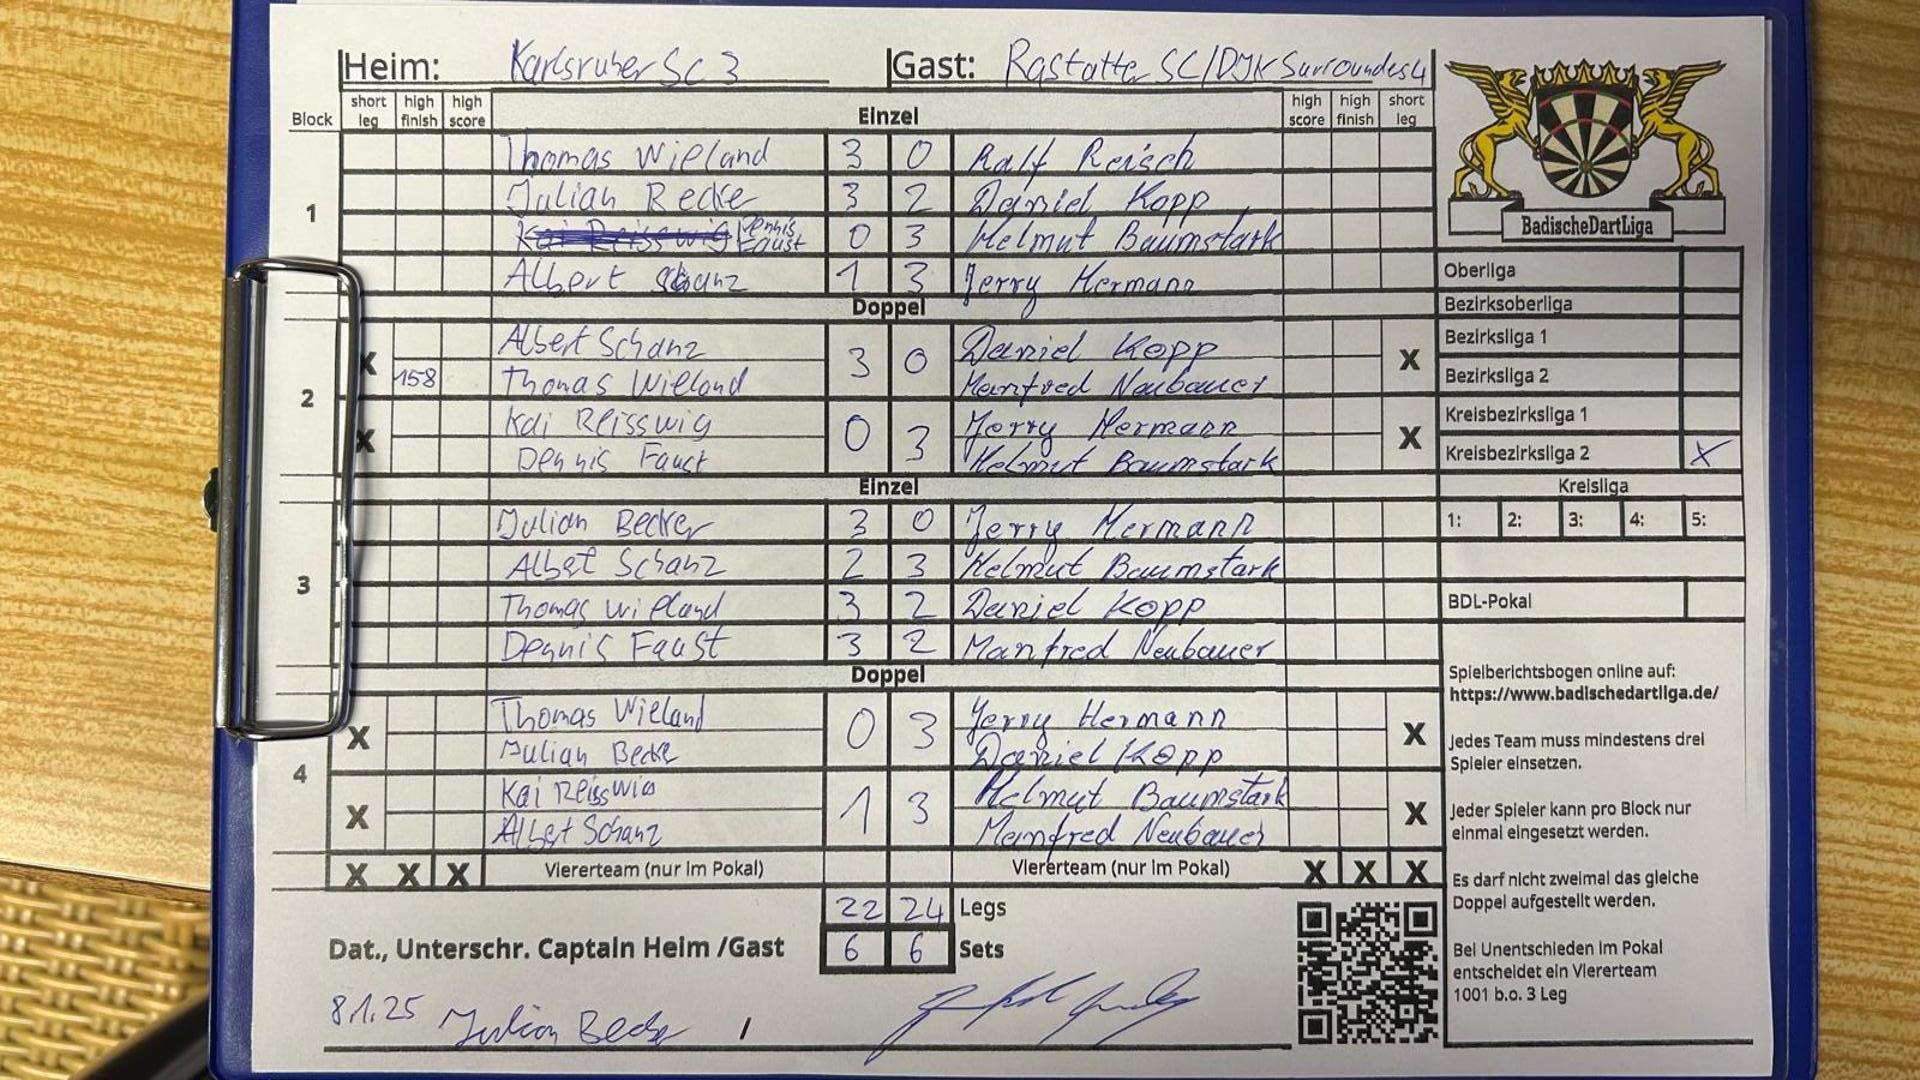 Heim: Karlsruher SC 3 Gast: Rastatter SC/DJK Surroundes 4
Block short leg high finish high score Einzel high score high finish short leg
1
Thomas Wieland 3 0 Ralf Reisch
Julian Becke 3 2 Daniel Kopp
Kai Reisswig Dennis Faust 0 3 Helmut Baumstark
Albert Schanz 1 3 Jerry Hermann
Doppel
2
X Albert Schanz 3 0 Daniel Kopp X
158 Thomas Wieland Manfred Neubauer
X Kai Reisswig 0 3 Jerry Hermann X
Dennis Faust Helmut Baumstark
Einzel
3
Julian Becker 3 0 Jerry Hermann
Albet Schanz 2 3 Helmut Baumstark
Thomas Wieland 3 2 Daniel Kopp
Dennis Faust 3 2 Manfred Neubauer
Doppel
4
X Thomas Wieland 0 3 Jerry Hermann X
Julian Becke Daniel Kopp
X Kai Reisswig 1 3 Helmut Baumstark X
Albert Schanz Manfred Neubauer
X X X Viererteam (nur im Pokal) Viererteam (nur im Pokal) X X X
22 24 Legs
Dat., Unterschr. Captain Heim /Gast 6 6 Sets
8.1.25 Julian Becker /
BadischeDartLiga
Oberliga
Bezirksoberliga
Bezirksliga 1
Bezirksliga 2
Kreisbezirksliga 1
Kreisbezirksliga 2 X
Kreisliga
1: 2: 3: 4: 5:
BDL-Pokal
Spielberichtsbogen online auf:
https://www.badischedartliga.de/
Jedes Team muss mindestens drei
Spieler einsetzen.
Jeder Spieler kann pro Block nur
einmal eingesetzt werden.
Es darf nicht zweimal das gleiche
Doppel aufgestellt werden.
Bei Unentschieden im Pokal
entscheidet ein Viererteam
1001 b.o. 3 Leg